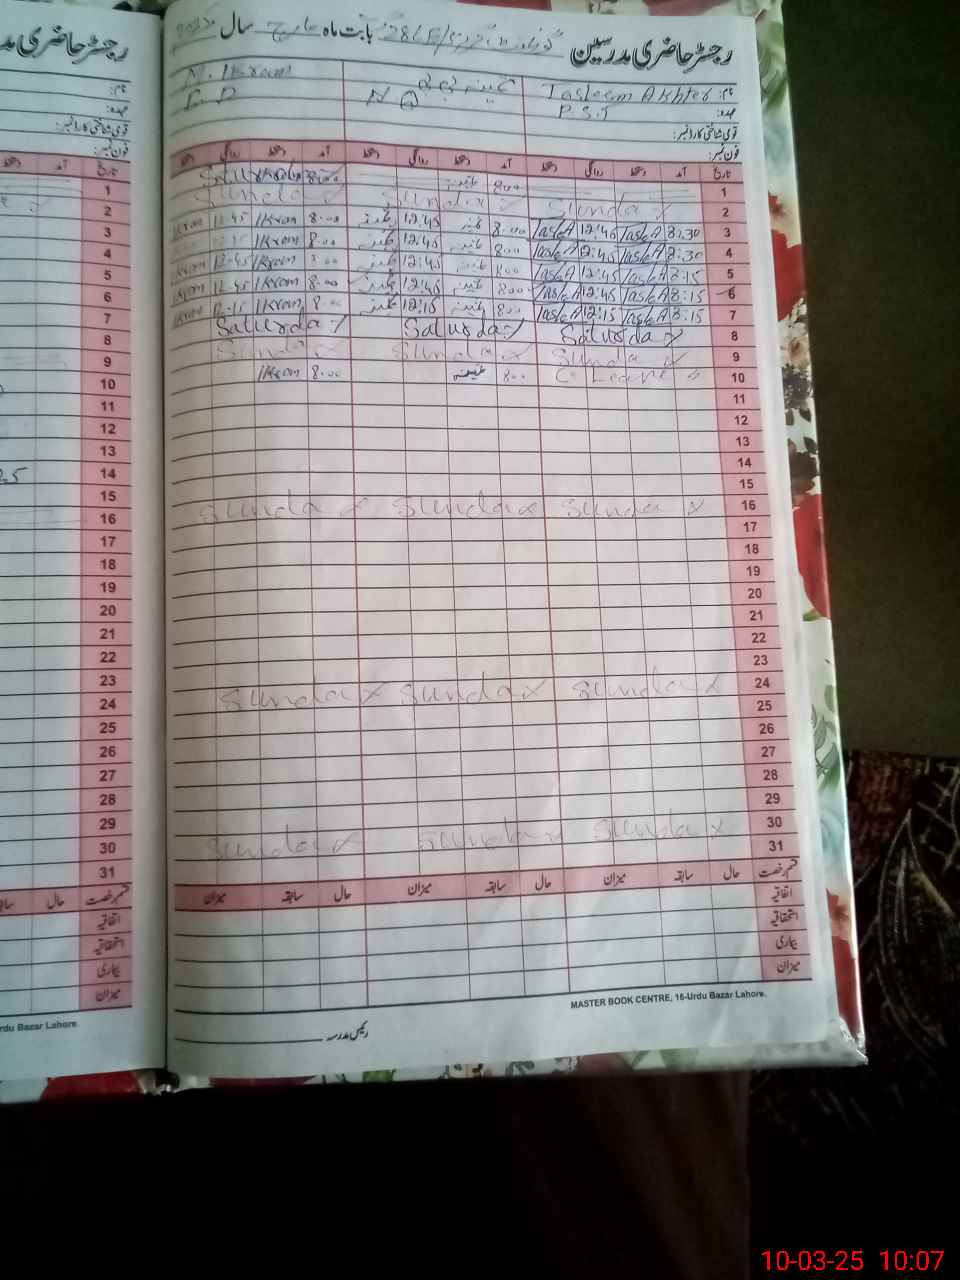 رجسٹر حاضری مدرسین بابت ماہ مارچ سال
نام: Tasleem Akhter نگینہ بی بی M. Ikram
عہدہ: P.S.T
قومی شناختی کارڈ نمبر:
فون نمبر:
تاریخ آمد دستخط روانگی دستخط آمد دستخط روانگی دستخط آمد دستخط روانگی دستخط
1 8:00 Saturday Ikram 8:00
2 Sunday Sunday Sunday
3 8:30 Tasl.A 12:45 Tasl.A 8:00 نگینہ 12:45 نگینہ 8:00 Ikram 12:45 Ikram
4 8:30 Tasl.A 12:45 Tasl.A 8:00 نگینہ 12:45 نگینہ 8:00 Ikram
5 8:15 Tasl.A 12:45 Tasl.A 8:00 نگینہ 12:45 نگینہ 8:00 Ikram 12:45 Ikram
6 8:15 Tasl.A 12:45 Tasl.A 8:00 نگینہ 12:45 نگینہ 8:00 Ikram 12:45 Ikram
7 8:15 Tasl.A 12:15 Tasl.A 8:00 نگینہ 12:15 نگینہ 8:00 Ikram 12:15 Ikram
8 Saturday Saturday Saturday
9 Sunday Sunday Sunday
10 C. Leave 8:00 نگینہ 8:00 Ikram
11
12
13
14
15
16 Sunday Sunday Sunday
17
18
19
20
21
22
23
24 Sunday Sunday Sunday
25
26
27
28
29
30 Sunday Sunday Sunday
31
قسم رخصت حال سابقہ میزان حال سابقہ میزان حال سابقہ میزان
اتفاقیہ
استحقاقیہ
بیماری
میزان
MASTER BOOK CENTRE, 16-Urdu Bazar Lahore.
رئیس مدرسہ
رجسٹر حاضری مدر
نام:
عہدہ:
قومی شناختی کارڈ نمبر:
فون نمبر:
تاریخ آمد دستخط
1
2
3
4
5
6
7
8
9
10
11
12
13
14
15
16
17
18
19
20
21
22
23
24
25
26
27
28
29
30
31
قسم رخصت حال
اتفاقیہ
استحقاقیہ
بیماری
میزان
rdu Bazar Lahore.
10-03-25 10:07